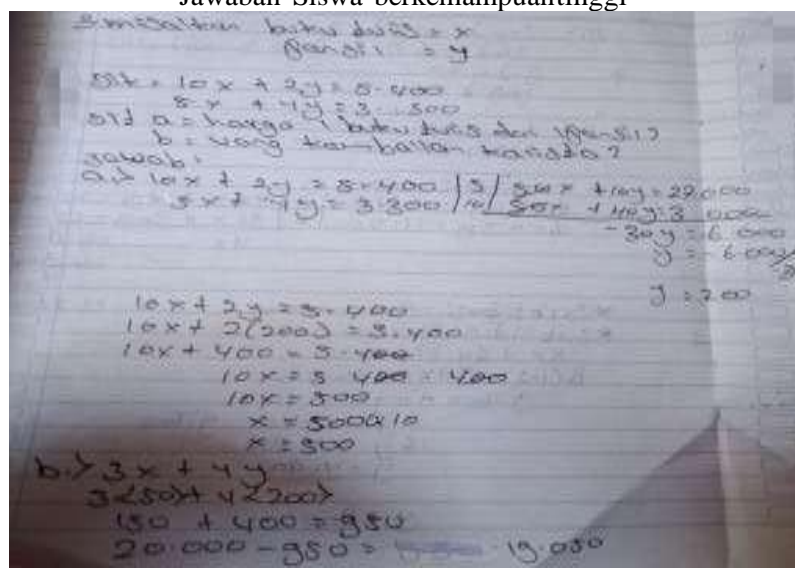 Jawaban Siswa berkemampuantinggi
misalkan buku tulis = x
Pensil = y
Dit = 10x + 2y = 5.400
5x + 4y = 3.300
Dit a = harga 1 buku tulis dan 1 Pensil?
b = uang kembalian
Jawab:
a.> 10x + 2y = 5.400 |5| 50x + 10y = 27.000
5x + 4y = 3.300 |10| 50x + 40y = 3
-30y = 6.000
y = -6.000/
y = 200
10x + 2y = 5.400
10x + 2(200) = 5.400
10x + 400 = 5.400
10x = 5 400 400
10x = 500
x =
x = 500
b.> 3x + 4y
3(50)+ 4(200)
150 + 400 = 950
20.000 - 950 = 19.050